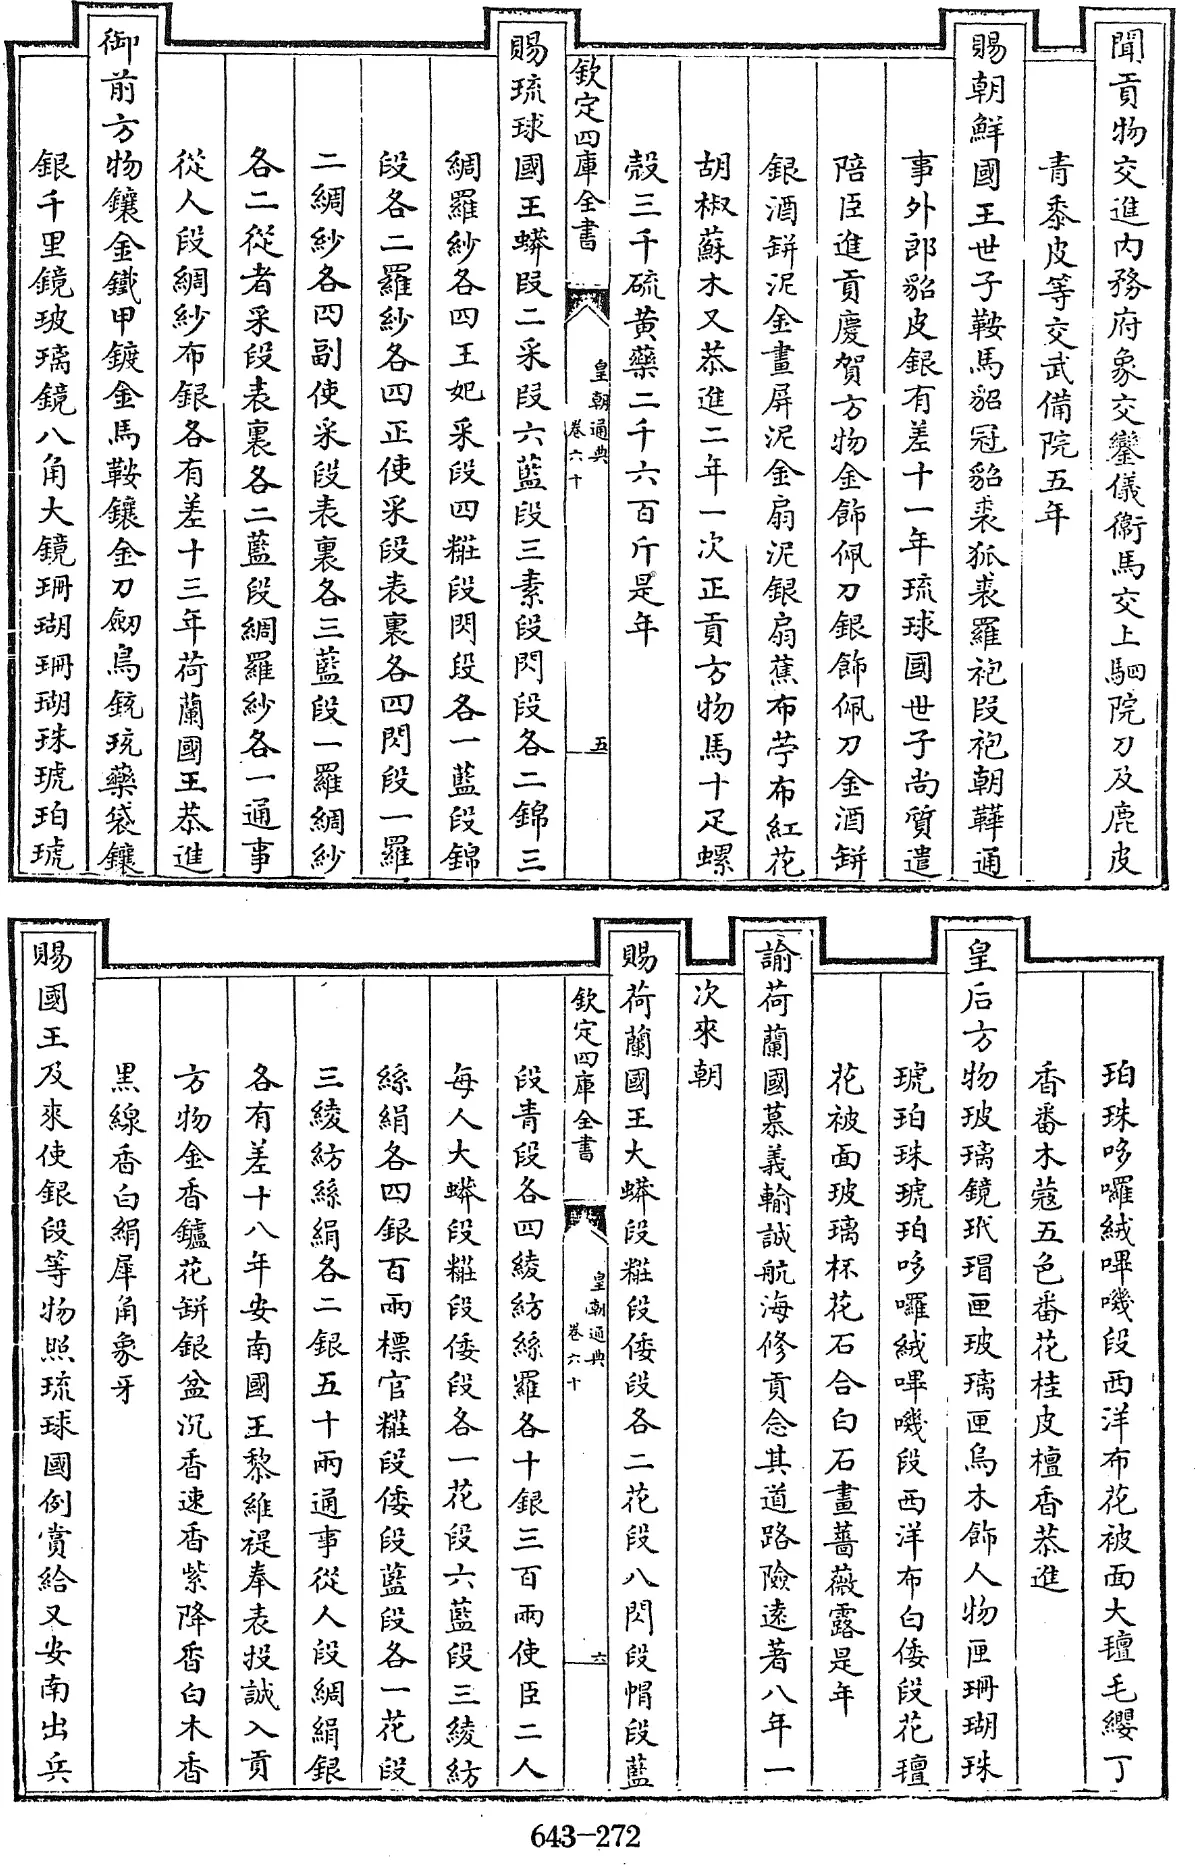 聞貢物交進內務府象交鑾儀衛馬交上駟院刀及鹿皮
青黍皮等交武備院五年
賜朝鮮國王世子鞍馬貂冠貂裘狐裘羅袍段袍朝鞾通
事外郎貂皮銀有差十一年琉球國世子尚質遣
陪臣進貢慶賀方物金飾佩刀銀飾佩刀金酒缾
銀酒缾泥金畫屏泥金扇泥銀扇蕉布苧布紅花
胡椒蘇木又恭進二年一次正貢方物馬十疋螺
殼三千硫黃藥二千六百斤是年
欽定四庫全書
皇朝通典
卷六十
五
賜琉球國王蟒段二采段六藍段三素段閃段各二錦三
綢羅紗各四王妃采段四糚段閃段各一藍段錦
段各二羅紗各四正使采段表裏各四閃段一羅
二綢紗各四副使采段表裏各三藍段一羅綢紗
各二從者采段表裏各二藍段綢羅紗各一通事
從人段綢紗布銀各有差十三年荷蘭國王恭進
御前方物鑲金鐵甲鍍金馬鞍鑲金刀劒鳥銃琉藥袋鑲
銀千里鏡玻璃鏡八角大鏡珊瑚珊瑚珠琥珀琥
珀珠哆囉絨嗶嘰段西洋布花被面大氊毛纓丁
香番木蔻五色番花桂皮檀香恭進
皇后方物玻璃鏡玳瑁匣玻璃匣烏木飾人物匣珊瑚珠
琥珀珠琥珀哆囉絨嗶嘰段西洋布白倭段花氊
花被面玻璃杯花石合白石畫薔薇露是年
諭荷蘭國慕義輸誠航海修貢念其道路險遠著八年一
次來朝
賜荷蘭國王大蟒段糚段倭段各二花段八閃段帽段藍
欽定四庫全書
皇朝通典
卷六十
六
段青段各四綾紡絲羅各十銀三百兩使臣二人
每人大蟒段糚段倭段各一花段六藍段三綾紡
絲絹各四銀百兩標官糚段倭段藍段各一花段
三綾紡絲絹各二銀五十兩通事從人段綢絹銀
各有差十八年安南國王黎維禔奉表投誠入貢
方物金香鑪花缾銀盆沉香速香紫降香白木香
黑線香白絹犀角象牙
賜國王及來使銀段等物照琉球國例賞給又安南出兵
643-272